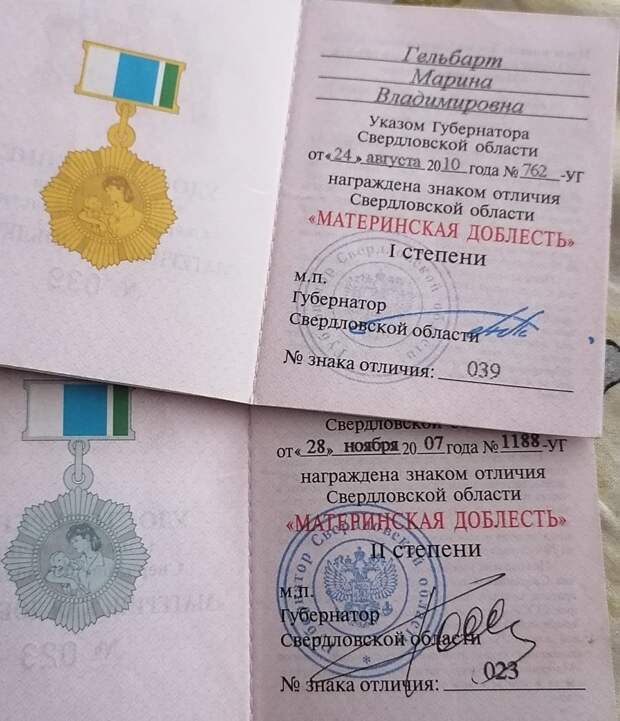 Гельбарт
Марина
Владимировна
Указом Губернатора
Свердловской области
от «24» августа 2010 года № 762 -УГ
награждена знаком отличия
Свердловской области
«МАТЕРИНСКАЯ ДОБЛЕСТЬ»
I степени
м.п.
Губернатор
Свердловской области
№ знака отличия: 039
Свердловской
от «28» ноября 2007 года № 1188-УГ
награждена знаком отличия
Свердловской области
«МАТЕРИНСКАЯ ДОБЛЕСТЬ»
II степени
м.п.
Губернатор
Свердловской области
№ знака отличия: 023
Губернатор Свердловской области